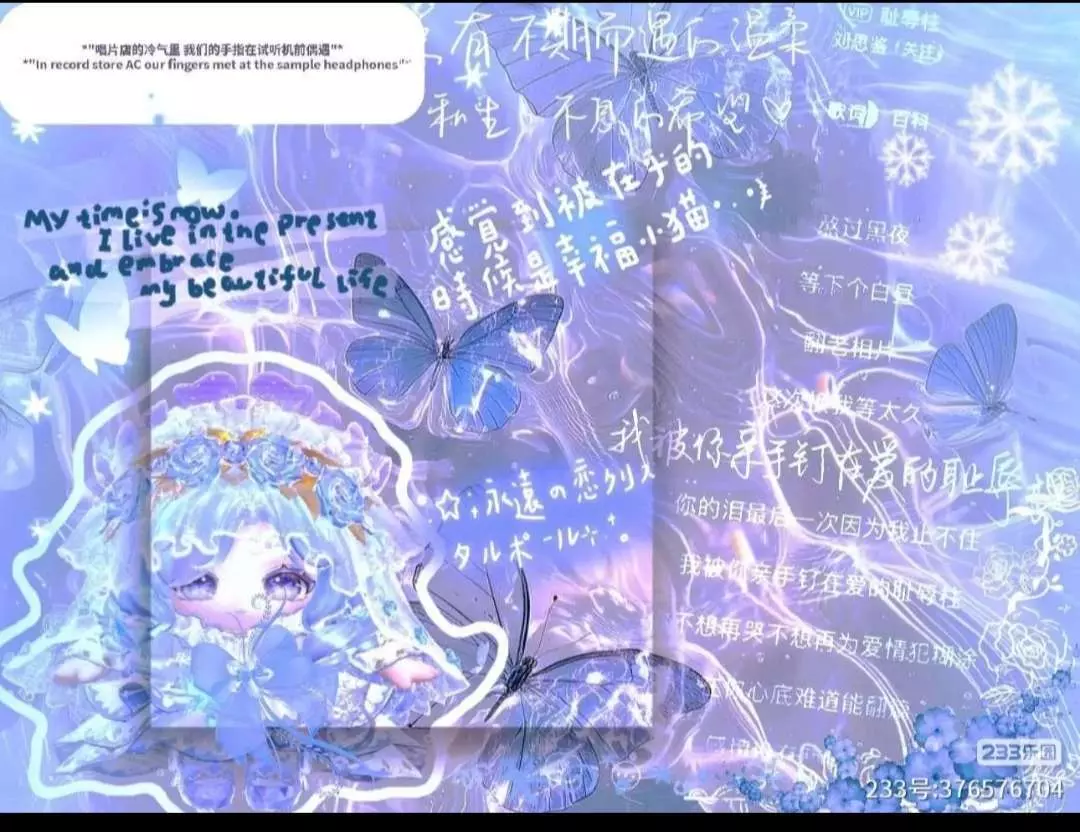 *"唱片店的冷气里 我们的手指在试听机前偶遇"*
*"In record store AC our fingers met at the sample headphones"*
有 不期而遇的温柔
私生 不息的希望♡
VIP 耻辱柱
刘思鉴 关注
歌词 百科
My time is now.
I live in the present
and embrace
my beautiful life
感覺到被在乎的
時候是幸福小猫..
熬过黑夜
等下个白昼
翻老相片
我等太久
我被你亲手钉在爱的耻辱
☆永遠の恋クリス
タルポール
你的泪最后一次因为我止不住
我被你亲手钉在爱的耻辱柱
不想再哭不想再为爱情犯糊涂
心底难道能翻
233乐园
233号:376576704